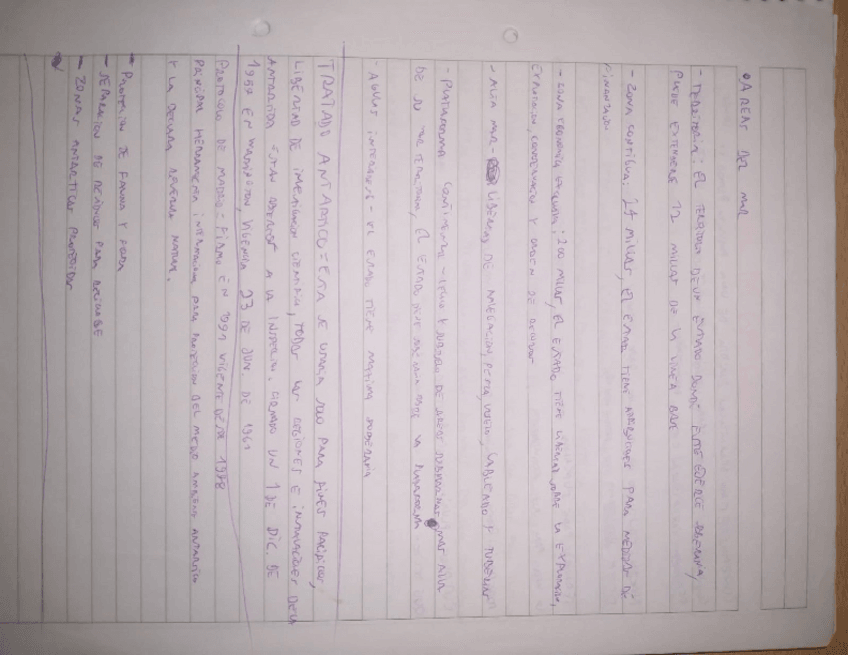 • AREAS DEL MAR
- TERRITORIAL: EL TERRITORIO DE UN ESTADO DONDE ESTE EJERCE SOBERANIA,
PUEDE EXTENDERSE 12 MILLAS DE LA LINEA BASE
- ZONA CONTIGUA: 24 MILLAS, EL ESTADO TIENE ATRIBUCIONES PARA MEDIDAS DE
- ZONA ECONOMICA EXCLUSIVA: 200 MILLAS, EL ESTADO TIENE SOBRE LA
EXPLOTACION, CONSERVACION Y
- ALTA MAR - LIBERTAD DE NAVEGACION, PESCA, VUELO, CABLEADO Y TUBERIAS
- PLATAFORMA CONTINENTAL - LECHO Y SUBSUELO DE AREAS SUBMARINAS MAS ALLA
DE SU MAR TERRITORIAL, EL ESTADO LA PLATAFORMA
- AGUAS INTERIORES - EL ESTADO TIENE MAXIMA SOBERANIA
TRATADO ANTARTICO = ESTA SE UTILIZA SOLO PARA FINES PACIFICOS,
LIBERTAD DE INVESTIGACION CIENTIFICA, TODAS LAS REGIONES E INSTALACIONES DE LA
ANTARTIDA ESTAN ABIERTAS A LA INSPECCION. FIRMADO UN 1 DE DIC. DE
1959 EN WASHINGTON, VIGENCIA 23 DE JUN. DE 1961
PROTOCOLO DE MADRID = FIRMO EN 1991 VIGENTE DESDE 1998
PRINCIPAL HERRAMIENTA INTERNACIONAL PARA PROTECCION DEL MEDIO AMBIENTE ANTARTICO
Y LA DECLARA RESERVA NATURAL.
- PROTECION DE FAUNA Y FLORA
- SEPARACION DE RESIDUOS PARA RECICLAJE
- ZONAS ANTARTICAS PROTEGIDAS